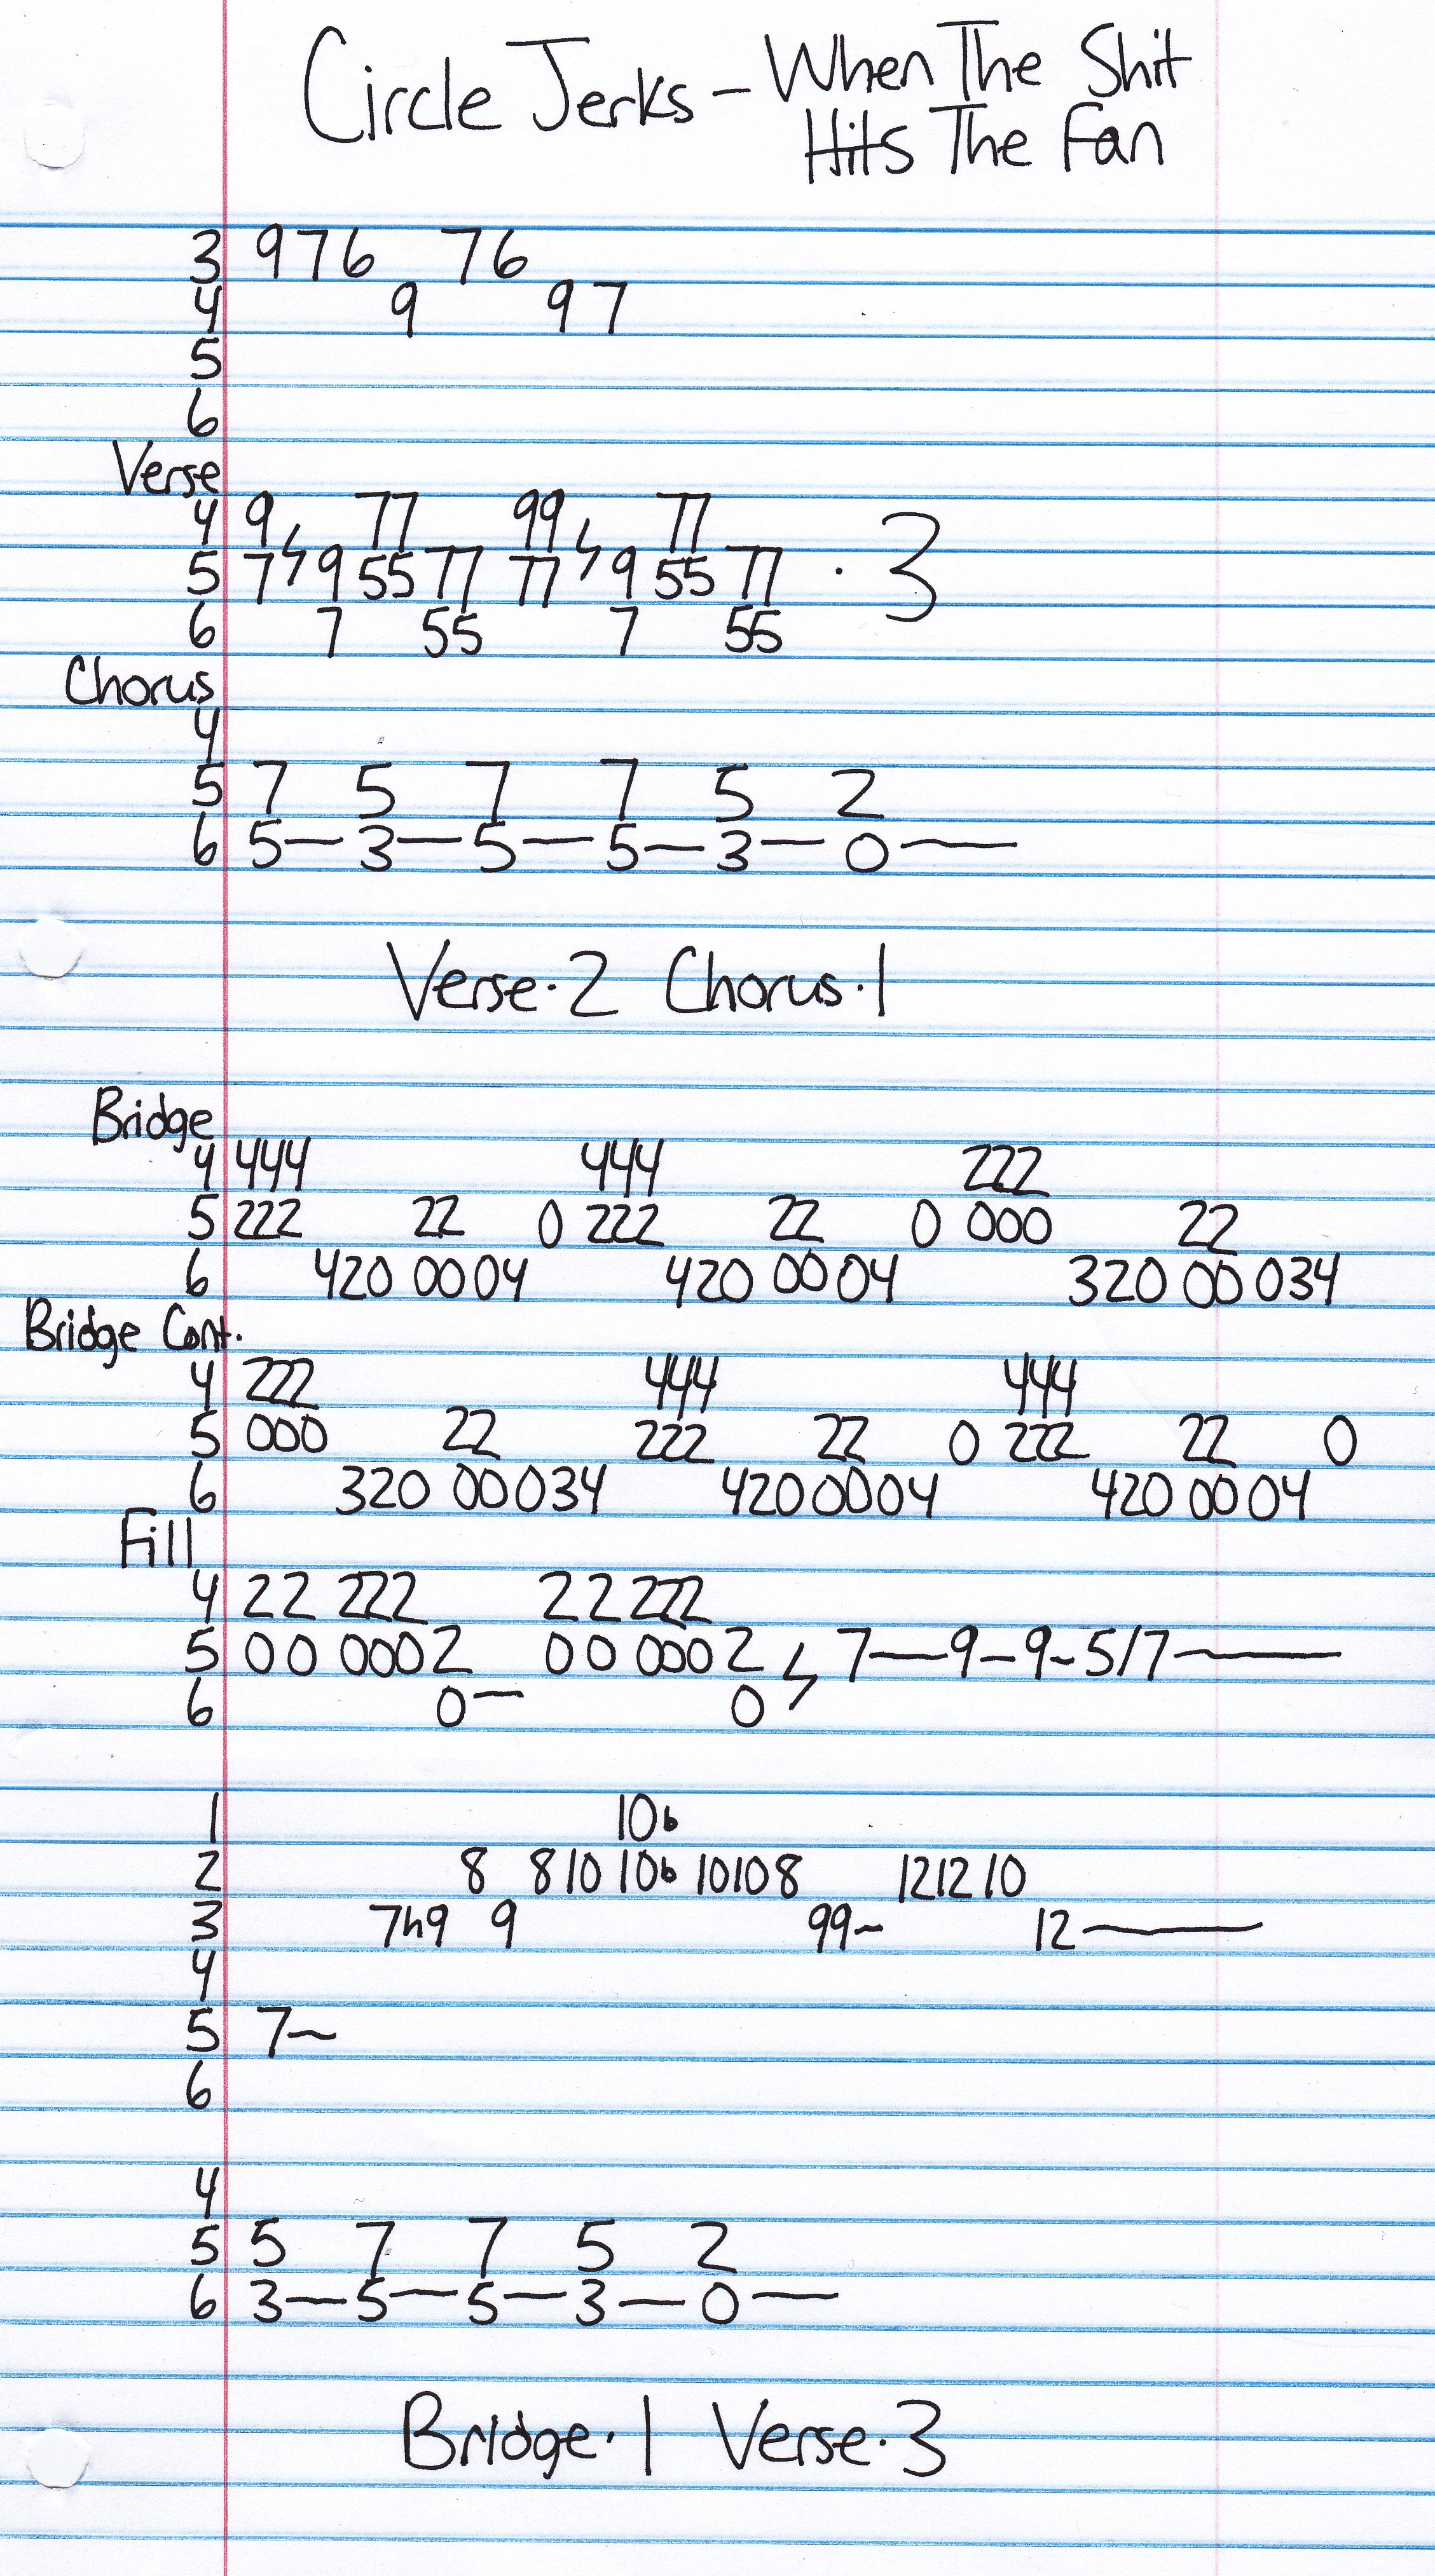 Circle Jerks - When The Shit
Hits The Fan
3 976 76
4 9 97
5
6
Verse
4 9 77 99 77
5 7 9 55 77 77 9 55 77 · 3
6 7 55 7 55
Chorus
4
5 7 5 7 7 5 2
6 5—3—5—5—3—0—
Verse·2 Chorus·1
Bridge
4 444 444 222
5 222 22 0 222 22 0 000 22
6 420 00 04 420 00 04 320 00 034
Bridge Cont.
4 222 444 444
5 000 22 222 22 0 222 22 0
6 320 00 034 420 00 04 420 00 04
Fill
4 22 222 22 222
5 00 0002 00 0002 7—9-9-5/7—
6 0— 0
1 10b
2 8 8 10 10b 10108 121210
3 7h9 9 99~ 12—
4
5 7~
6
4
5 5 7 7 5 2
6 3—5—5—3—0—
Bridge·1 Verse·3